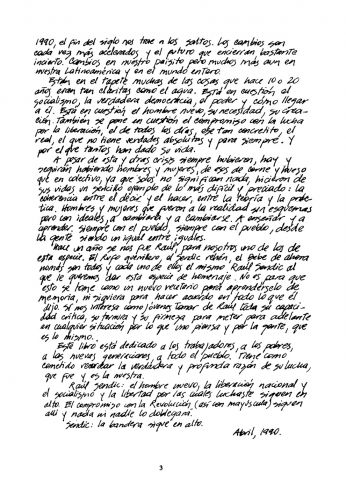 1990, el fin del siglo nos trae a los saltos. Los cambios son
cada vez más acelerados y el futuro que encierran bastante
incierto. Cambios en nuestro paisito pero muchos más aun en
nuestra Latinoamérica y en el mundo entero.
Están en el tapete muchas de las cosas que hace 10 o 20
años eran tan claritas como el agua. Está en cuestión el
socialismo, la verdadera democracia, el poder y cómo llegar
a él. Está en cuestión el hombre nuevo, su necesidad, su crea-
ción. También se pone en cuestión el compromiso con la lucha
por la liberación, el de todos los días, ese tan concreto, el
real, el que no tiene verdades absolutas y para siempre. Y
por el que tantos han dado su vida.
A pesar de esta y otras crisis siempre hubieron, hay y
seguirán habiendo hombres y mujeres, de esos de carne y hueso
que en colectivo, ya que solo no significan nada, hicieron de
sus vidas un sencillo ejemplo de lo más difícil y preciado: la
coherencia entre el decir y el hacer, entre la teoría y la prác-
tica. Hombres y mujeres que fueron a la realidad sin esquemas
pero con ideales, a cambiarla y a cambiarse. A enseñar y a
aprender, siempre con el pueblo, siempre con el pueblo, desde
la gente siendo un igual entre iguales.
Hace un año se nos fue Raúl, para nosotros uno de la de
esta especie. El Rufo queridero, el Sendic rebén, el Bebe de ahora
somos son todos y cada uno de ellos el mismo Raúl Sendic al
que le queremos dar esta especie de homenaje. No es para que
esto se tome como un nuevo recitario para aprendérselo de
memoria, ni siquiera para hacer acuerdo en todo lo que él
dijo. Si nos interesa como jóvenes tomar de Raúl toda su capaci-
dad crítica, su ternura y su firmeza para meter para adelante
en cualquier situación por lo que uno piensa y por la gente, que
es lo mismo.
Este libro está dedicado a los trabajadores, a los pobres,
a las nuevas generaciones, a todo el pueblo. Tiene como
cometido recordar la verdadera y profunda razón de su lucha,
que fue y es la nuestra.
Raúl Sendic: el hombre nuevo, la liberación nacional y
el socialismo y la libertad por las cuales luchaste siguen en
alto. El compromiso con la Revolución (así con mayúscula) siguen
allí y nada ni nadie lo doblegará.
Sendic: la bandera sigue en alto.
Abril, 1990.
3